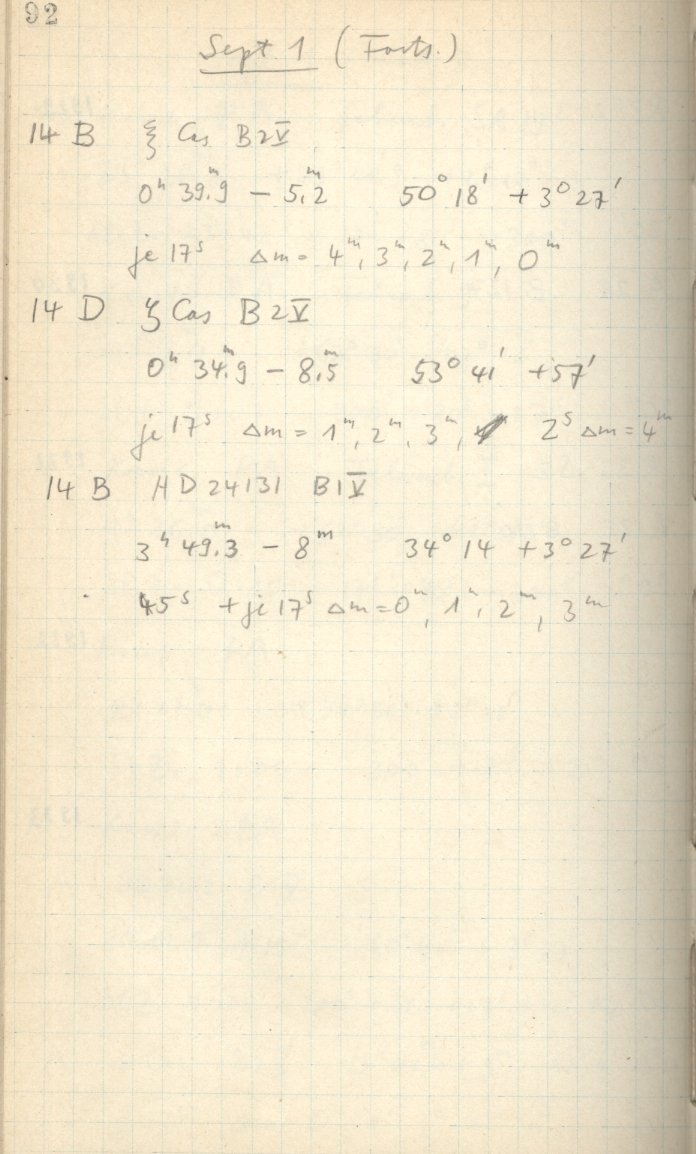 92
Sept 1 (Forts.)
14 B ξ Cas B2V
0ʰ 39ᵐ.9 – 5ᵐ.2 50° 18' + 3° 27'
je 17ˢ Δm = 4ᵐ, 3ᵐ, 2ᵐ, 1ᵐ, 0ᵐ
14 D ζ Cas B2V
0ʰ 34ᵐ.9 – 8ᵐ.5 53° 41' +57'
je 17ˢ Δm = 1ᵐ, 2ᵐ, 3ᵐ, 2ˢ Δm = 4ᵐ
14 B HD 24131 B1V
3ʰ 49ᵐ.3 – 8ᵐ 34° 14 + 3° 27'
45ˢ + je 17ˢ Δm = 0ᵐ, 1ᵐ, 2ᵐ, 3ᵐ